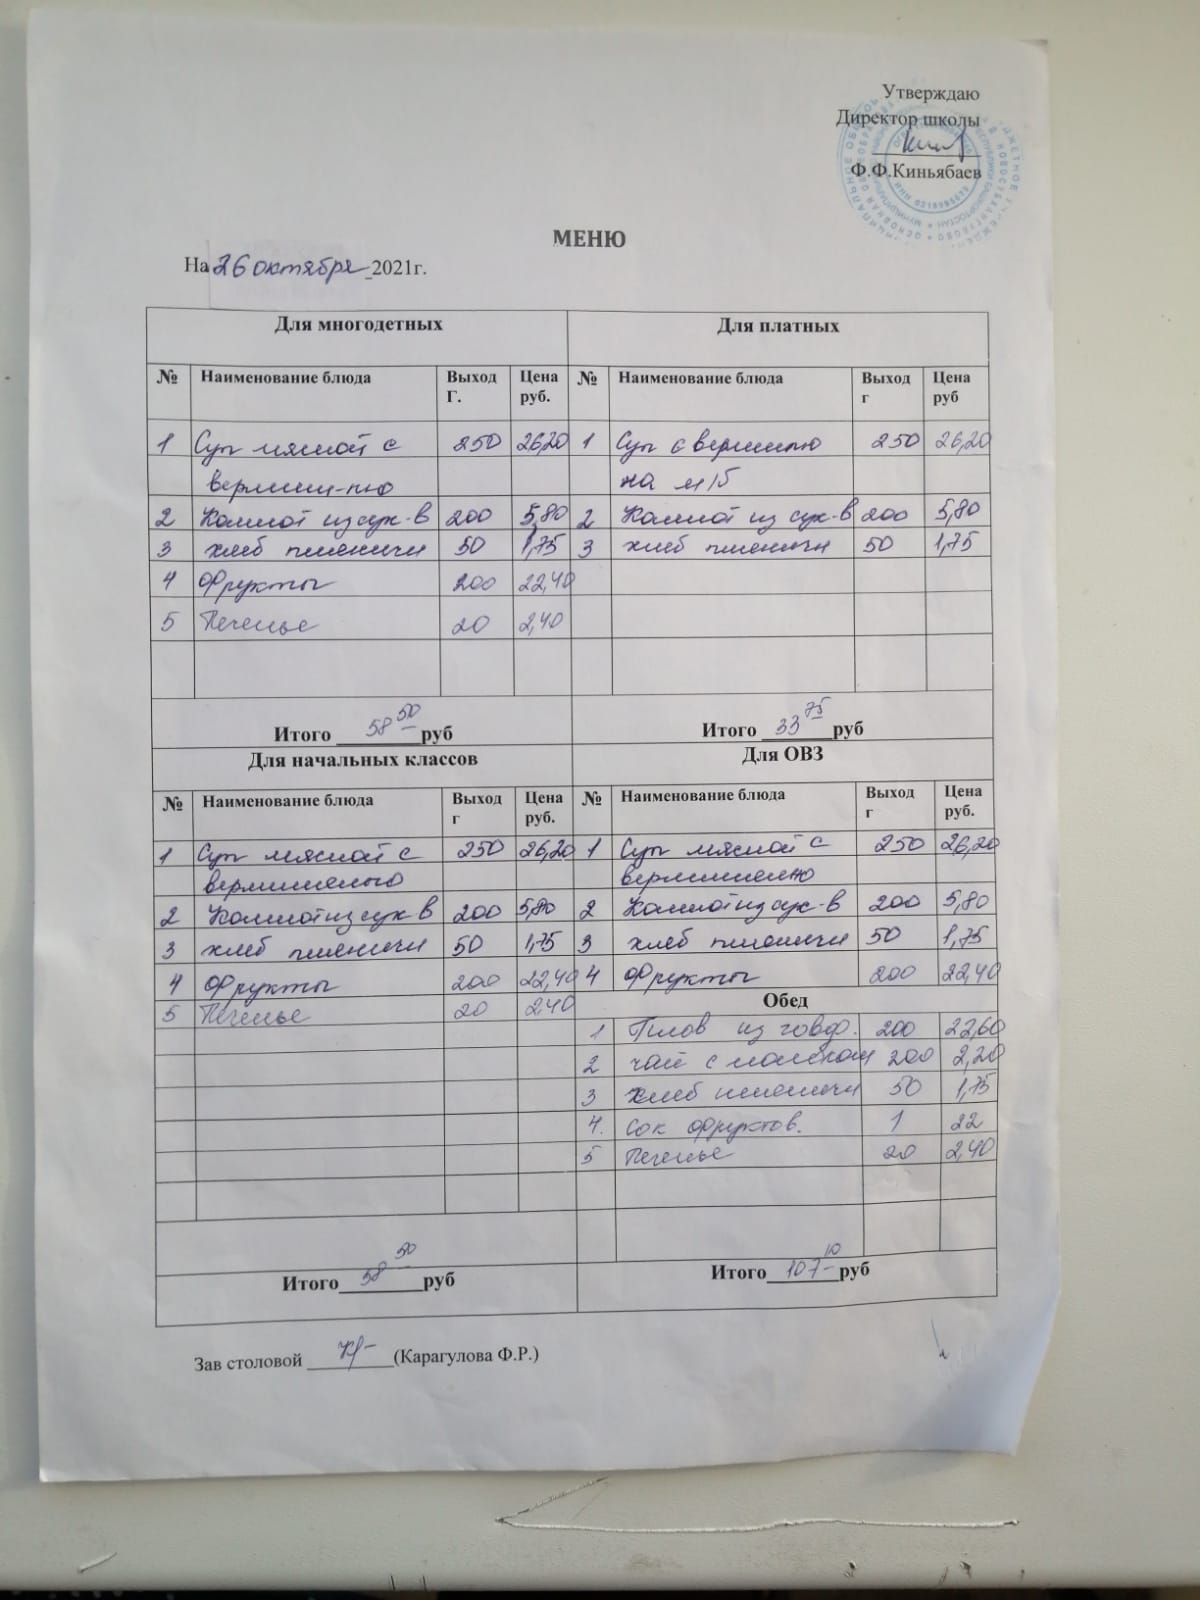 Утверждаю
Директор школы
Ф.Ф.Киньябаев
МЕНЮ
На 26 октября _2021г.
Для многодетных Для платных
№ Наименование блюда Выход Г. Цена руб. № Наименование блюда Выход г Цена руб
1 Суп мясной с 250 26,20 1 Суп с вермишелью 250 26,20
вермиш-лью на м/б
2 Компот из сух-в 200 5,80 2 Компот из сух-в 200 5,80
3 хлеб пшеничн 50 1,75 3 хлеб пшеничн 50 1,75
4 Фрукты 200 22,40
5 Печенье 20 2,40
Итого 58 50 руб Итого 33 75 руб
Для начальных классов Для ОВЗ
№ Наименование блюда Выход г Цена руб. № Наименование блюда Выход г Цена руб.
1 Суп мясной с 250 26,20 1 Суп мясной с 250 26,20
вермишелью вермишелью
2 Компот из сух-в 200 5,80 2 Компот из сух-в 200 5,80
3 хлеб пшеничн 50 1,75 3 хлеб пшеничн 50 1,75
4 Фрукты 200 22,40 4 Фрукты 200 22,40
5 Печенье 20 2,40 Обед
1 Плов из говяд. 200 22,60
2 чай с молоком 200 2,20
3 хлеб пшеничн 50 1,75
4. Сок фруктов. 1 22
5 Печенье 20 2,40
Итого 58 50 руб Итого 107 10 руб
Зав столовой (Карагулова Ф.Р.)